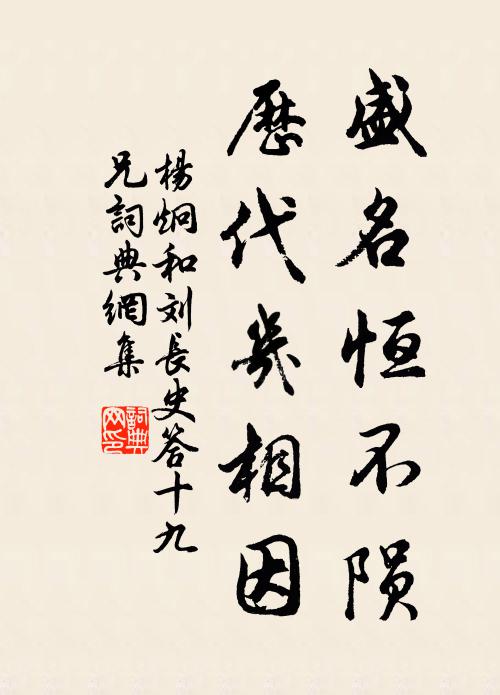 盛名恒不陨
歷代幾相因
楊炯和刘長史答十九
兄詞典網集
詞典
网印